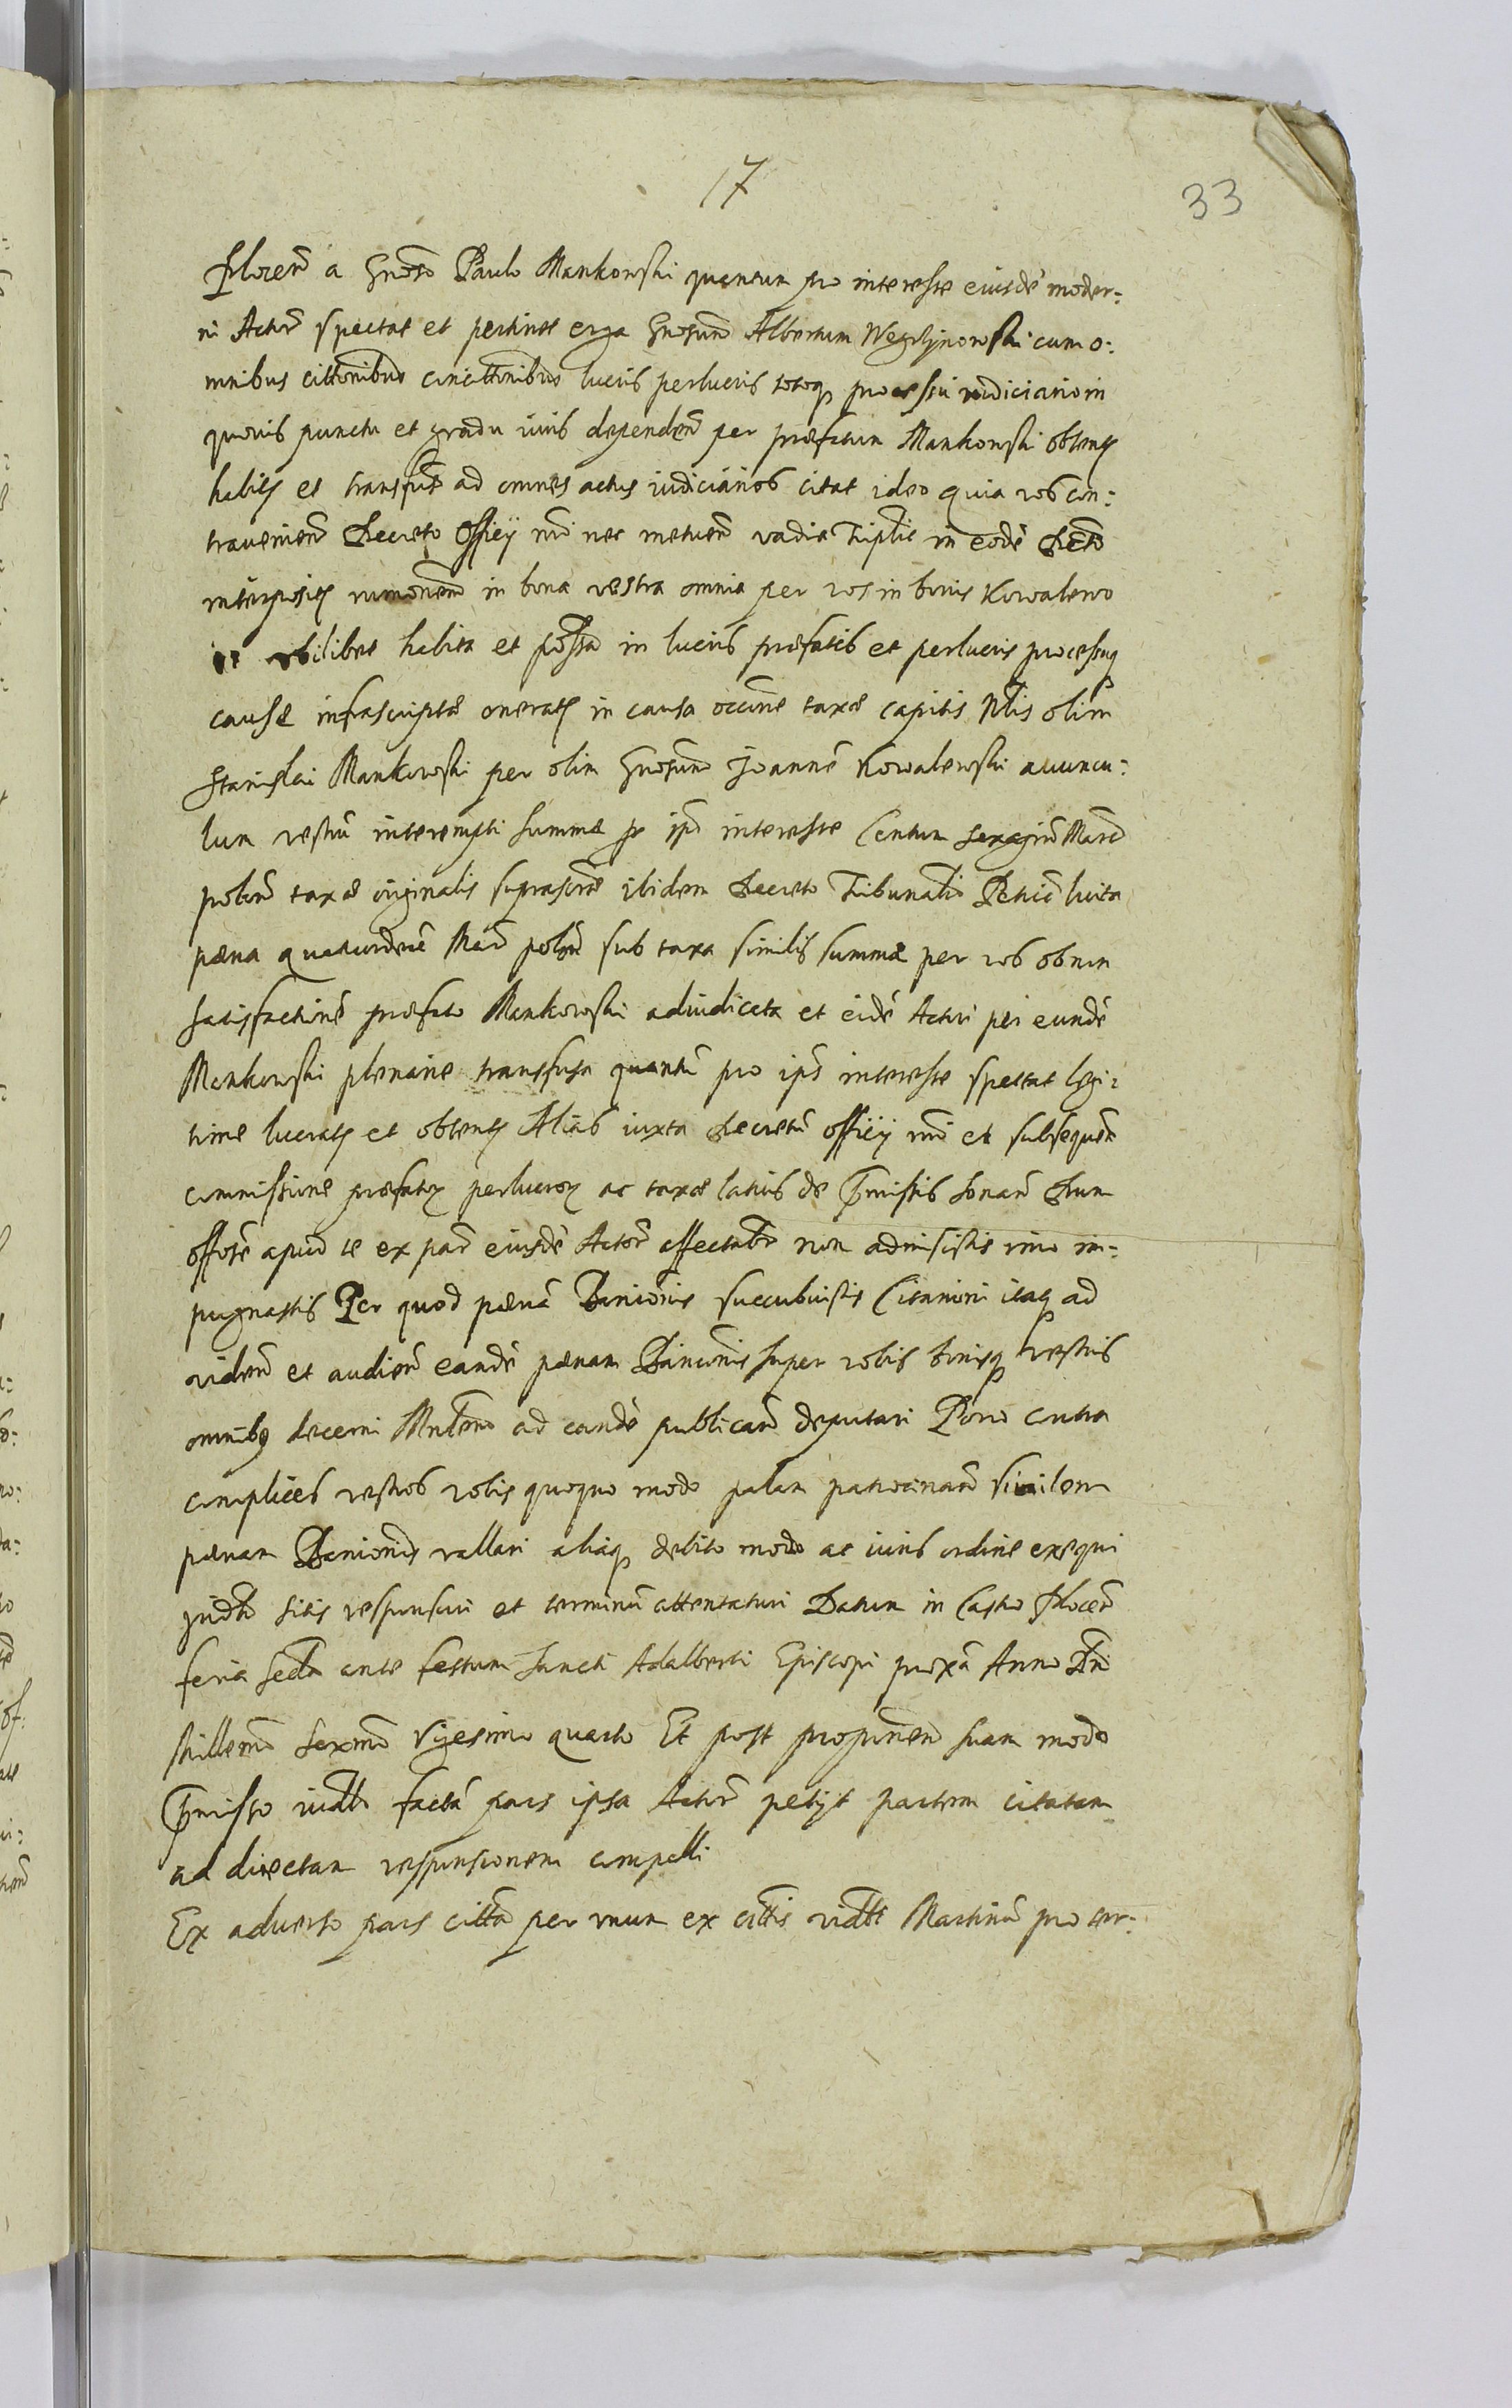 17
33
Plocen̄ a Gnoso Paulo Mankowski quantum pro interesse eiusdē moder:
ni Actor̄ spectat et pertinet erga Gnosum Albertum Węgrzynowski cum o:
mnibus cittonibus concittonibus lucris perlucris totoq̧ processu iudiciario in
quovis punctu et gradu iuris dependen̄ per præfatum Mankowski obtent
habit et transfus̄ ad omnes actus iudiciarios citat ideo quia vos con:
travenien̄ Decreto Officÿ nri nec metuen̄ vadia Triplic̄ in eodē Decto
interposit in bona vestra omnia per vos in bonis Kowalewo
ubilibet habita et possa in lucris præfatis et perlucris processuq̧
causæ infrascriptæ onerat in causa occine taxæ capitis Nblis olim
Stanislai Mankowski per olim Gnosum Joannē Kowalewski avuncu:
lum vestrū interempti summæ pro ipō interesse Centum sexagin̄ Marc̄
polon̄ taxæ originalis suprascrae ibidem Decreto Tribunalis Petric̄ lucra
pæna quatuordecē Marc̄ polon̄ sub taxa similis summæ per vos ob non
satisfactionē præfato Mankowski adiudicata et eidē Actori per eundē
Mankowski plenarie transfusa quantū pro ipō interesse spectat legi:
time lucrat et obtent Alias iuxta Decretū officÿ nri et subsequen̄
commissione præfat perlucror̄ ac taxæ latius de p̄missis sonan̄ Dum
offōtē apud te ex par̄ eiusdē Actor̄ affectabr̄ non admisistis imo im:
pugnastis Per quod pænā Banionis succubuistis Citamini itaq̧ ad
viden̄ et audien̄ eandē pænam Banionis super vobis bonisq̧ vestris
omnibꝗ decerni Mnlem̄ ad eandē publicand̄ deputari Porro contra
complices vestros vobis quoquo modo palam patrocinan̄ similem
pænam Banionis vallari aliaq̧ debito modo ac iuris ordine exequi
Iudte sitis responsuri et terminū attentaturi Datum in Castro Plocen̄
feria secda ante festum Sancti Adalberti Episcopi proxā Anno Dni
Millem̄o Sexm̄o Vigesimo quarto Et post propōnem suam modo
p̄misso iudte factā pars ipsa Actor̄ petÿt partem citatam
ad directam responsionem compelli
Ex adverso pars citta per unum ex cittis vidtt Martinū pro ter: